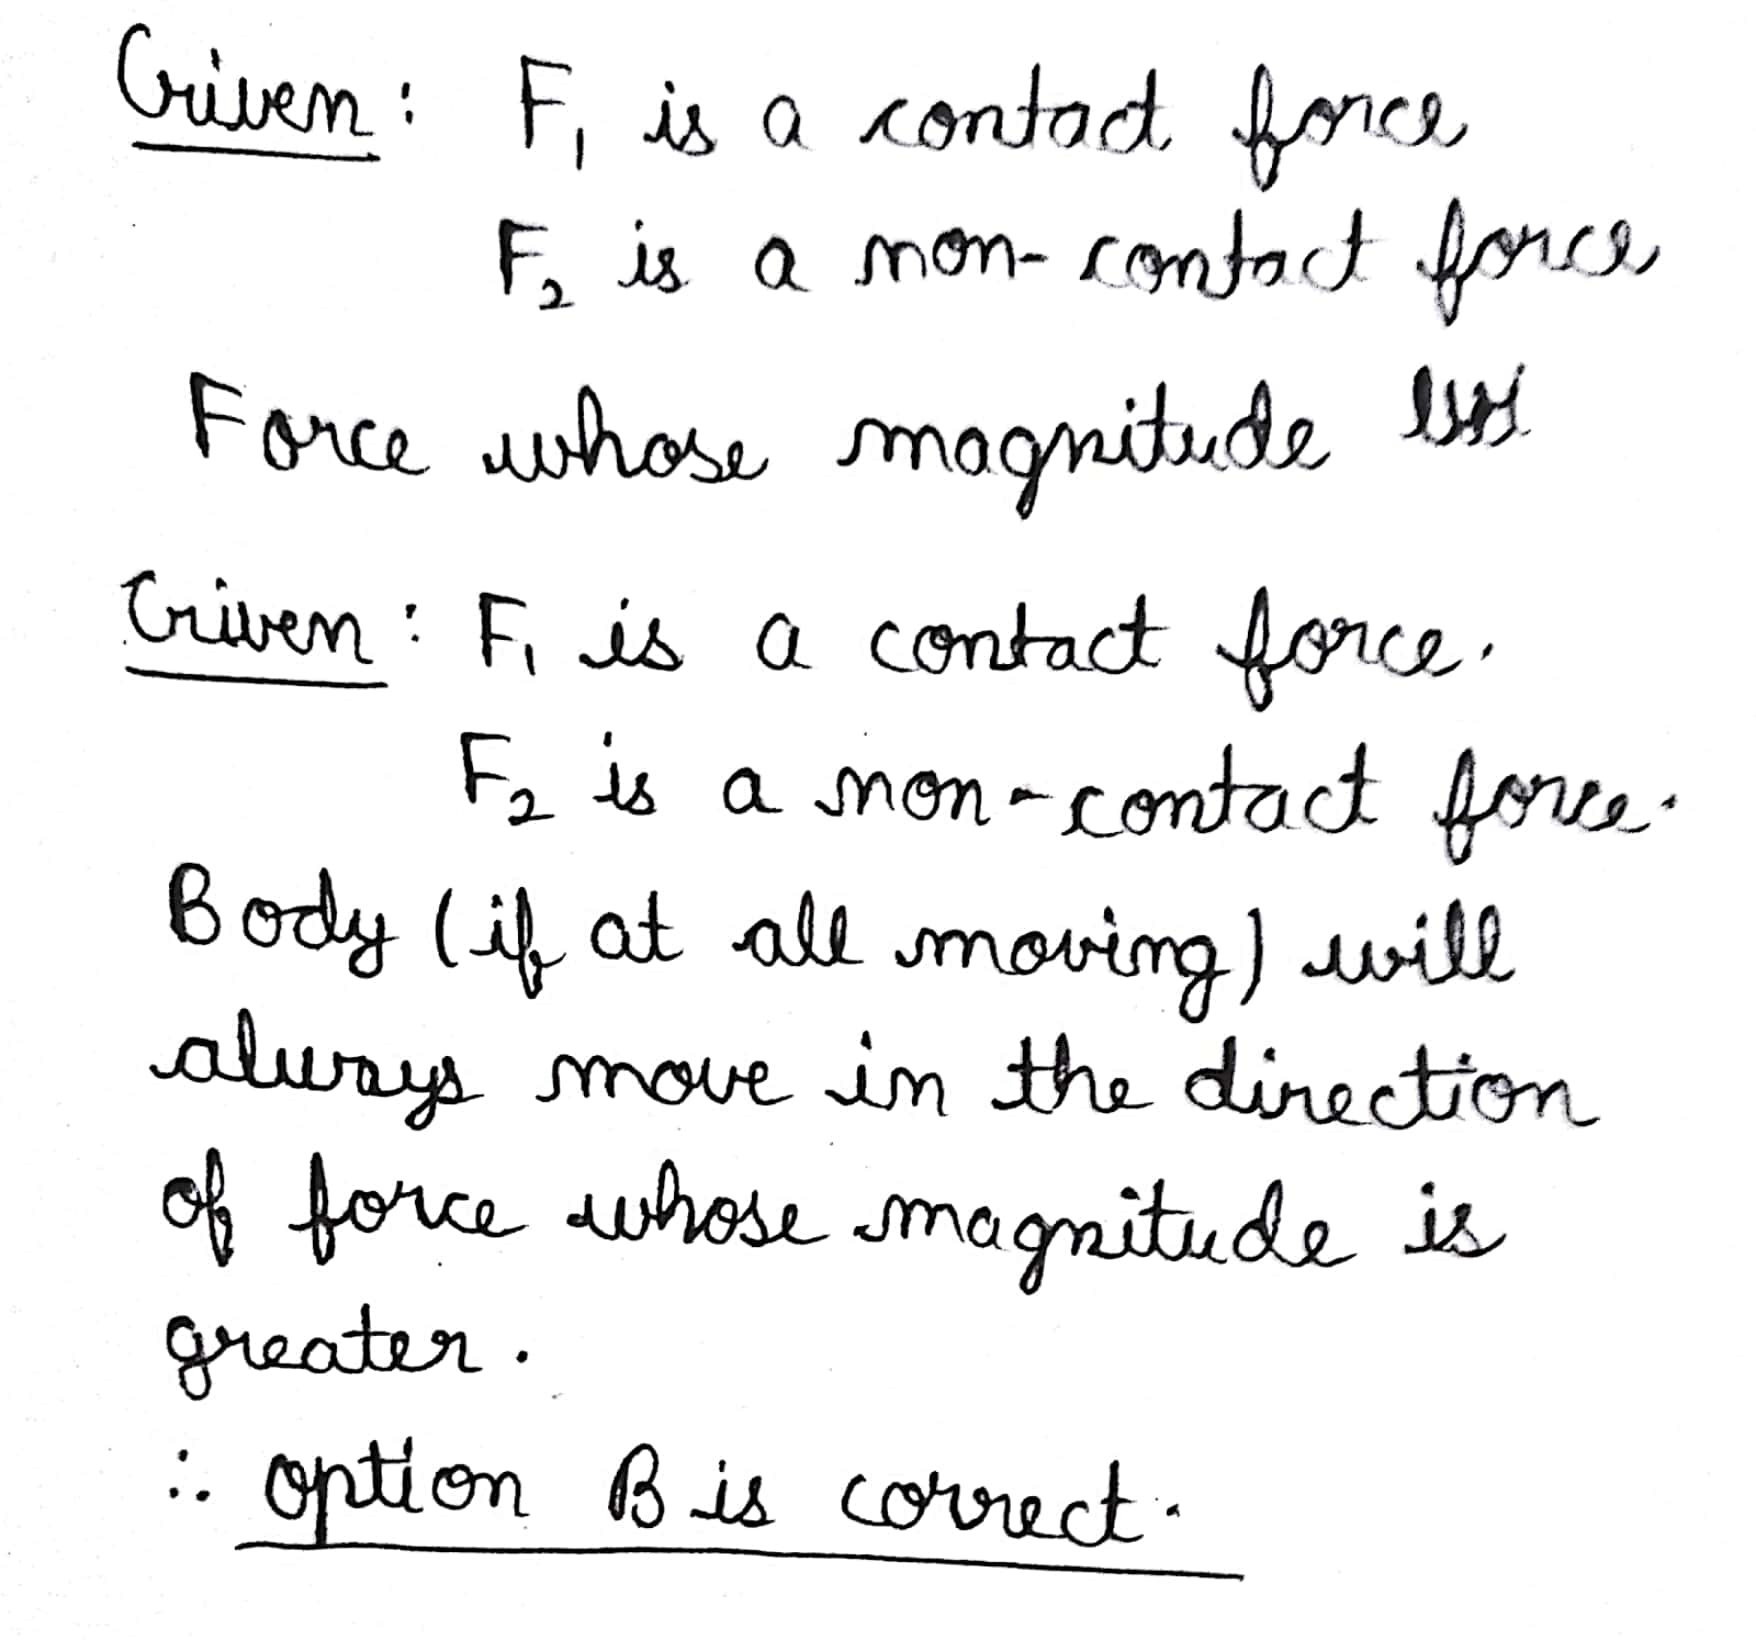 Given : F₁ is a contact force
F₂ is a non-contact force
Force whose magnitude
Given : F₁ is a contact force.
F₂ is a non-contact force.
Body (if at all moving) will
always move in the direction
of force whose magnitude is
greater.
∴ option B is correct.